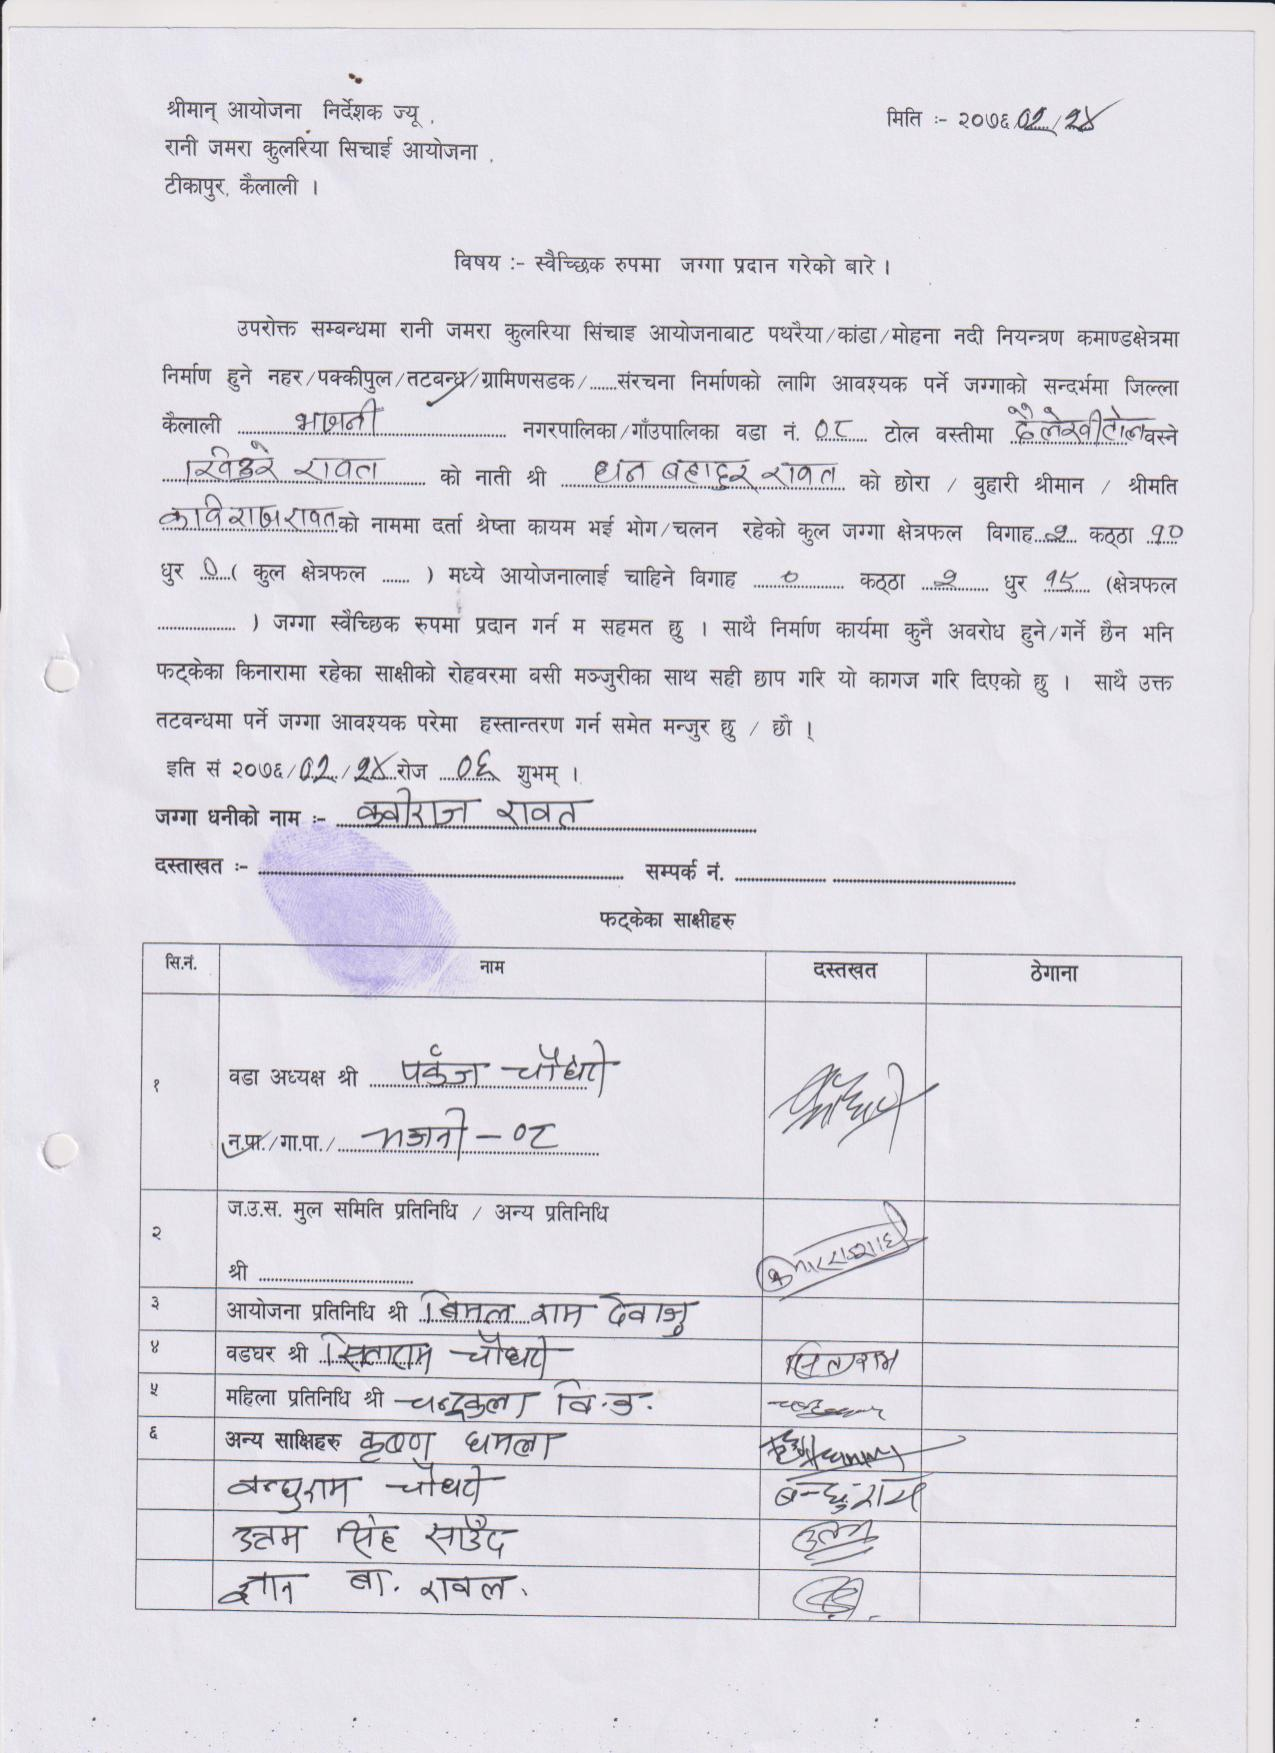 श्रीमान् आयोजना निर्देशक ज्यू ,
मिति :- २०७६/०२/२४
रानी जमरा कुलरिया सिचाई आयोजना ,
टीकापुर, कैलाली ।
विषय :- स्वैच्छिक रुपमा जग्गा प्रदान गरेको बारे ।
उपरोक्त सम्बन्धमा रानी जमरा कुलरिया सिंचाइ आयोजनाबाट पथरैया/कांडा/मोहना नदी नियन्त्रण कमाण्डक्षेत्रमा
निर्माण हुने नहर/पक्कीपुल/तटबन्ध/ग्रामिणसडक/......संरचना निर्माणको लागि आवश्यक पर्ने जग्गाको सन्दर्भमा जिल्ला
कैलाली भजनी नगरपालिका/गाँउपालिका वडा नं. ०८ टोल वस्तीमा दैलेखीटोल वस्ने
रावत को नाती श्री धन बहादुर रावत को छोरा / बुहारी श्रीमान / श्रीमति
कविराज रावत को नाममा दर्ता श्रेष्ता कायम भई भोग/चलन रहेको कुल जग्गा क्षेत्रफल विगाह २ कठ्ठा १०
धुर ० ( कुल क्षेत्रफल ...... ) मध्ये आयोजनालाई चाहिने विगाह ० कठ्ठा २ धुर १५ (क्षेत्रफल
................. ) जग्गा स्वैच्छिक रुपमा प्रदान गर्न म सहमत छु । साथै निर्माण कार्यमा कुनै अवरोध हुने/गर्ने छैन भनि
फट्केका किनारामा रहेका साक्षीको रोहवरमा वसी मञ्जुरीका साथ सही छाप गरि यो कागज गरि दिएको छु । साथै उक्त
तटवन्धमा पर्ने जग्गा आवश्यक परेमा हस्तान्तरण गर्न समेत मन्जुर छु / छौ ।
इति सं २०७६/०२/२४ रोज ०६ शुभम् ।
जग्गा धनीको नाम :- कवीराज रावत
दस्ताखत :- .................... सम्पर्क नं. ....................
फट्केका साक्षीहरु
सि.नं. नाम दस्तखत ठेगाना
१ वडा अध्यक्ष श्री पर्कज चौधरी
न.पा./गा.पा./ भजनी - ०८
२ ज.उ.स. मुल समिति प्रतिनिधि / अन्य प्रतिनिधि
श्री ....................
३ आयोजना प्रतिनिधि श्री बिमल राम देवाजु
४ वडघर श्री सिताराम चौधरी सिताराम
५ महिला प्रतिनिधि श्री चन्द्रकला वि.क.
६ अन्य साक्षिहरु कृष्ण धमला
बन्धुराम चौधरी बन्धुराम
उत्तम सिंह साउँद
ज्ञान बा. रावल.